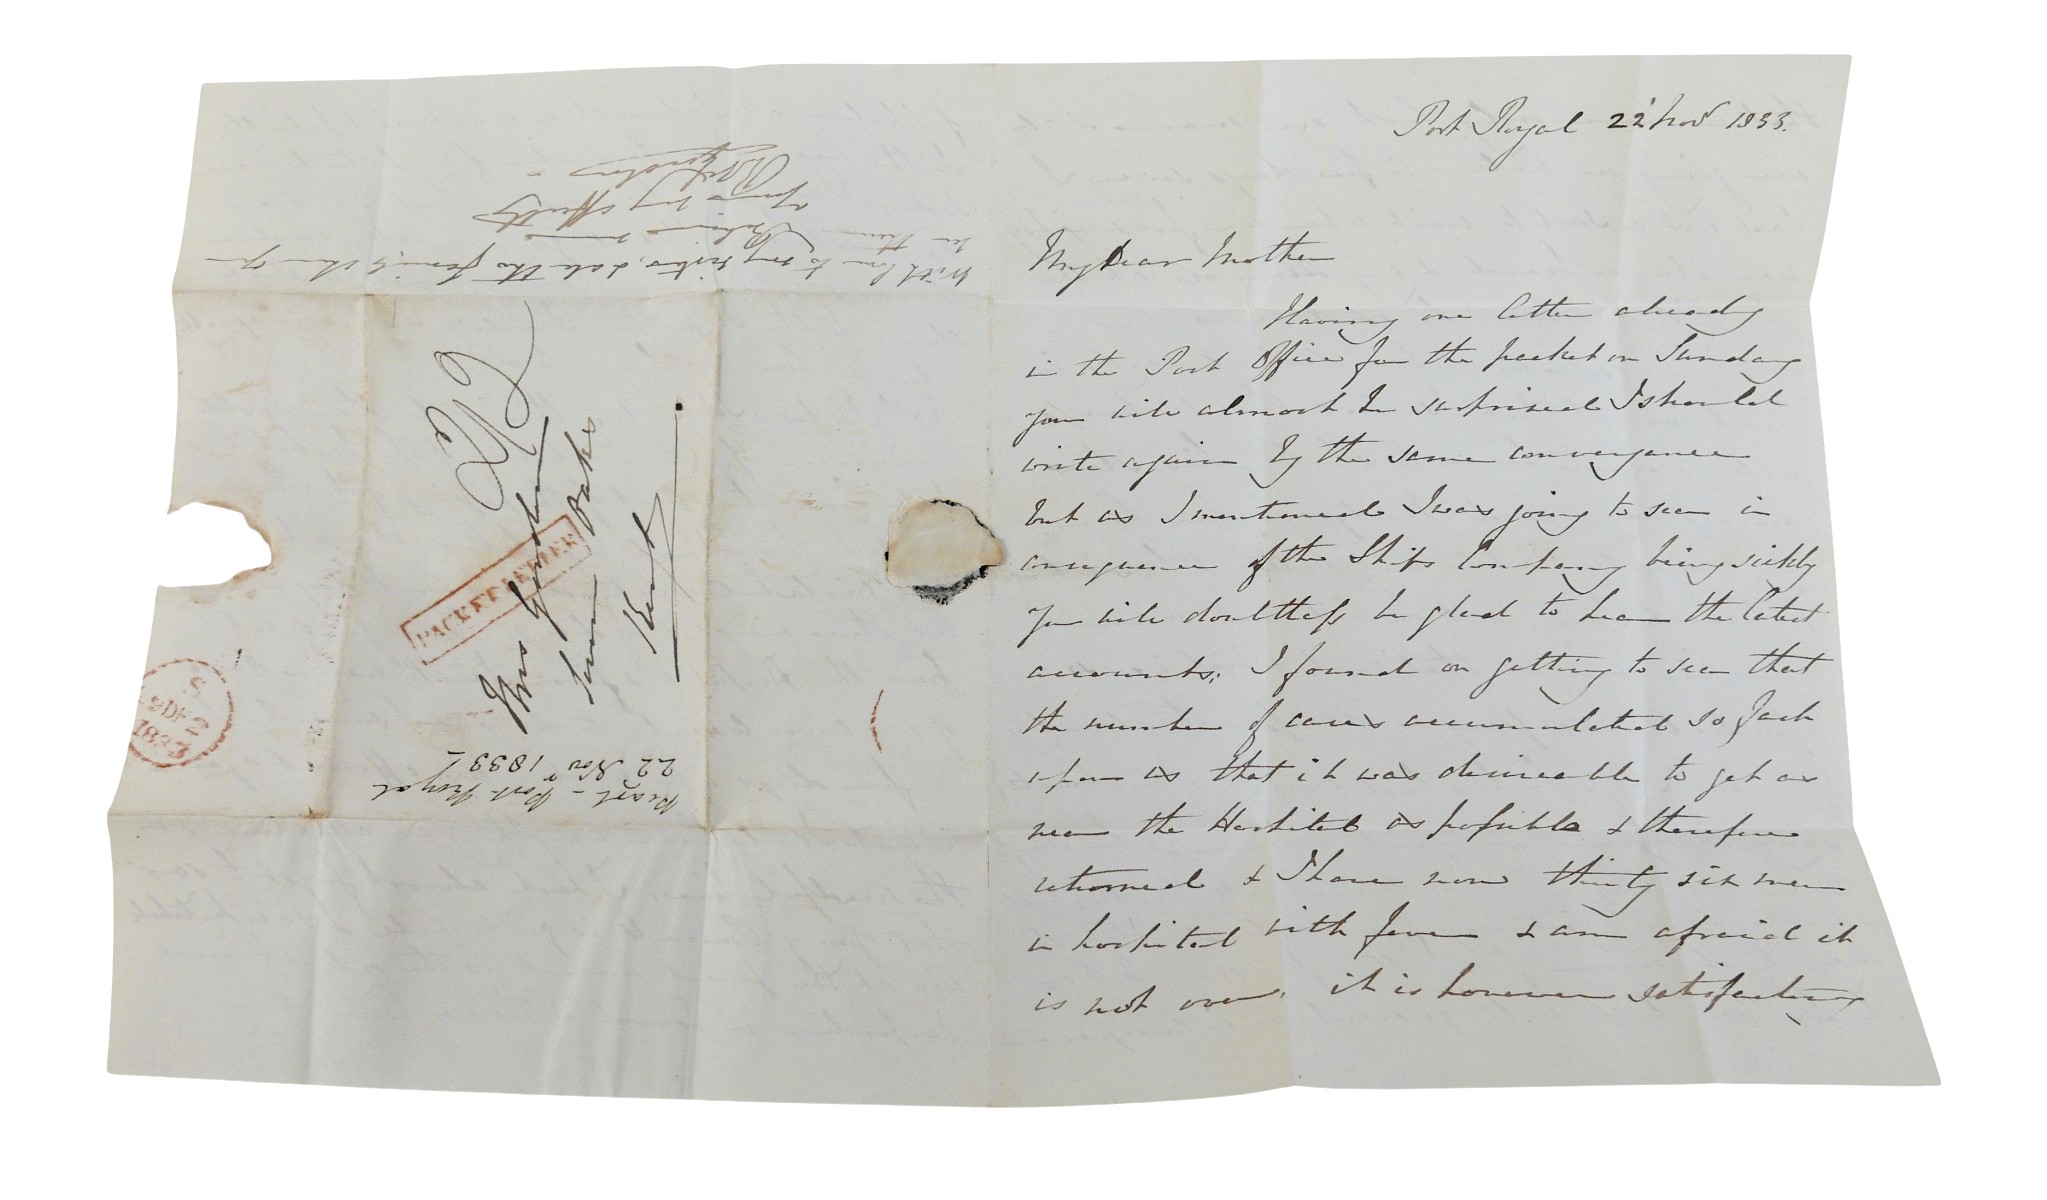 Port Royal 22 Novr 1833.
My Dear Mother
Having one letter already
in the Post Office for the packet on Sunday
you will almost be surprised I should
write again by the same conveyance
but as I mentioned I was going to sea in
consequence of the Ships Company being sickly
you will doubtless be glad to hear the latest
accounts. I found on getting to sea that
the number of cases accumulated so fast
upon us that it was desireable to get as
near the Hospital as possible & therefore
returned & I have now thirty six men
in hospital with fever & am afraid it
is not over. it is however satisfactory
With love to my sisters, & all the family when you
see them Believe me
Yours very affectly
Mrs Gordon
Seven Oaks
Kent
PACKET LETTER
Port Royal
22 Novr 1833
S
9 DE 2
1833